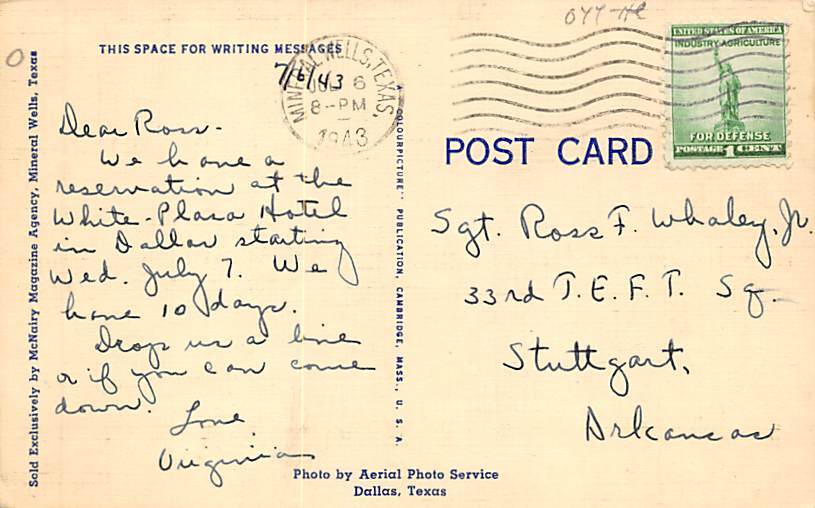 THIS SPACE FOR WRITING MESSAGES
7/6/43
MINERAL WELLS, TEXAS,
JUL 6
8-PM
1943
Dear Ross-
We have a
reservation at the
White-Plaza Hotel
in Dallas starting
Wed. July 7. We
have 10 days.
Drop us a line
or if you can come
down.
Love
Virginia
Sold Exclusively by McNairy Magazine Agency, Mineral Wells, Texas
A "COLOURPICTURE" PUBLICATION, CAMBRIDGE, MASS., U. S. A.
UNITED STATES OF AMERICA
INDUSTRY AGRICULTURE
FOR DEFENSE
POSTAGE 1 CENT
POST CARD
Sgt. Ross F. Whaley, Jr.
33rd T.E.F.T. Sq.
Stuttgart,
Arkansas
Photo by Aerial Photo Service
Dallas, Texas